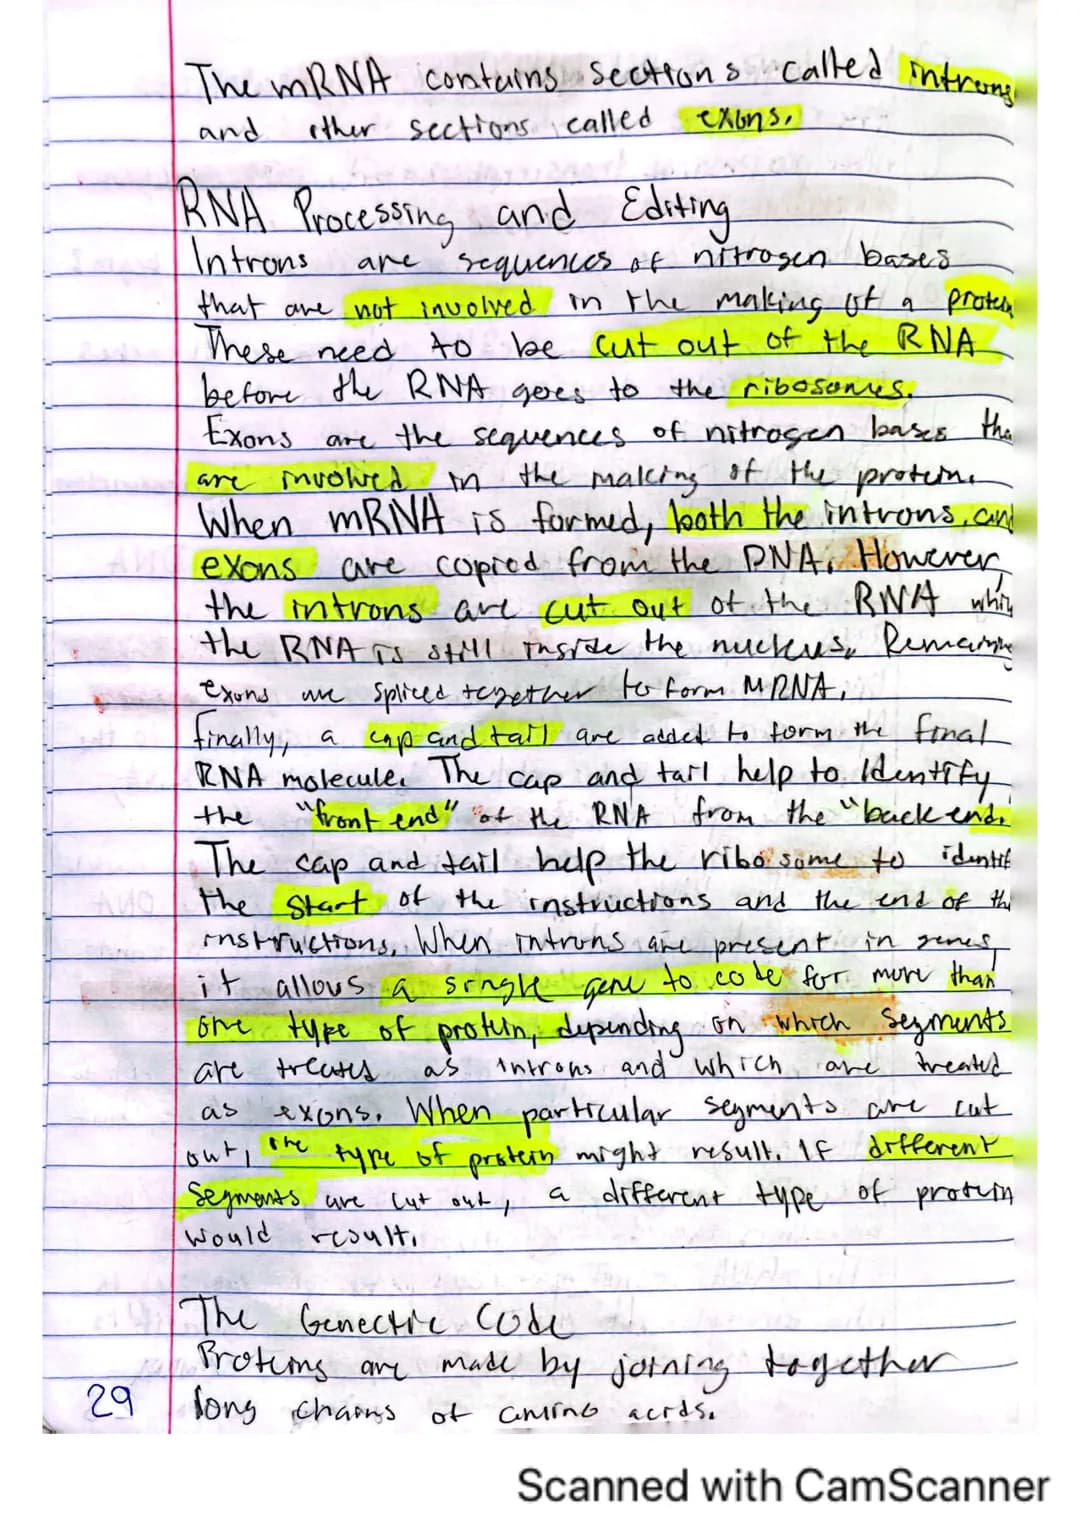 The mRNA contains sections called introns
and other sections called exons.
RNA Processing and Editing
Introns are sequences of nitrogen bases
that are not involved in the making of a protein
These need to be cut out of the RNA
before the RNA goes to the ribosomes.
Exons are the sequences of nitrogen bases tha
are involved in the making of the protein.
When mRNA is formed, both the introns and
exons are copied from the DNA. However,
the introns are cut out of the RNA while
the RNA is still inside the nucleus. Remaining
exons are spliced together to form MRNA.
Finally, a cap and tail are added to form the final
RNA molecule. The cap and tail help to identify
the "front end" of the RNA from the "back end.
The cap and tail help the ribosome to identif
the start of the instructions and the end of th
instructions. When introns are present in genes,
it allows a single gene to code for more than
one type of protein, depending on which segments
are treated as introns and which are treated
as exons. When particular segments are cut
out, one type of protein might result. If different
segments are cut out, a different type of protein
would result.
The Genectic Code
Proteins are made by joining together
29 long chains of amino acids.
Scanned with CamScanner